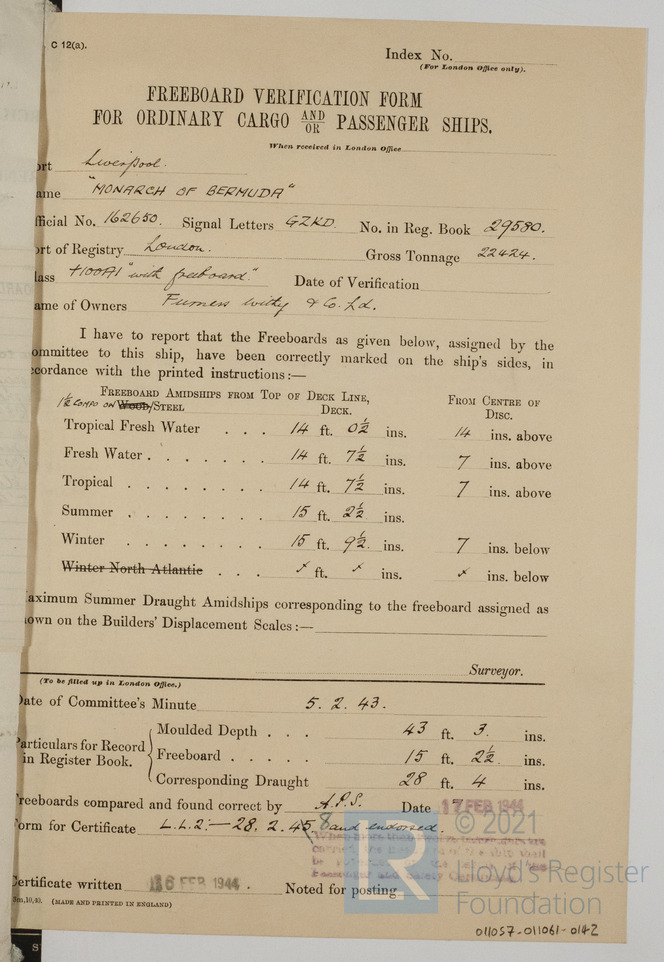 C 12(a).
Index No.
(For London Office only).
FREEBOARD VERIFICATION FORM
FOR ORDINARY CARGO AND/OR PASSENGER SHIPS.
When received in London Office
ort Liverpool.
ame "MONARCH OF BERMUDA"
fficial No. 162650. Signal Letters GZKD. No. in Reg. Book 29580.
ort of Registry London. Gross Tonnage 22424.
lass +100A1 "with freeboard." Date of Verification
ame of Owners Furness Withy & Co. Ld.
I have to report that the Freeboards as given below, assigned by the
ommittee to this ship, have been correctly marked on the ship's sides, in
ccordance with the printed instructions:—
FREEBOARD AMIDSHIPS FROM TOP OF DECK LINE, FROM CENTRE OF
1½ COMPO ON WOOD/STEEL DECK. DISC.
Tropical Fresh Water . . . 14 ft. 0½ ins. 14 ins. above
Fresh Water . . . . . . . 14 ft. 7½ ins. 7 ins. above
Tropical . . . . . . . . 14 ft. 7½ ins. 7 ins. above
Summer . . . . . . . . 15 ft. 2½ ins.
Winter . . . . . . . . 15 ft. 9½ ins. 7 ins. below
Winter North Atlantic . . . x ft. x ins. x ins. below
aximum Summer Draught Amidships corresponding to the freeboard assigned as
own on the Builders' Displacement Scales:—
Surveyor.
(To be filled up in London Office.)
Date of Committee's Minute 5. 2. 43.
Particulars for Record in Register Book.
Moulded Depth . . . 43 ft. 3. ins.
Freeboard . . . . . 15 ft. 2½ ins.
Corresponding Draught 28 ft. 4 ins.
Freeboards compared and found correct by A.P.S. Date 17 FEB 1944
Form for Certificate L.L.2.—28. 2. 45. 8 and endorsed.
© 2021
LR
Lloyd's Register
Foundation
Certificate written 16 FEB 1944. Noted for posting
8m,10,40. (MADE AND PRINTED IN ENGLAND)
011057-011061-0142
S